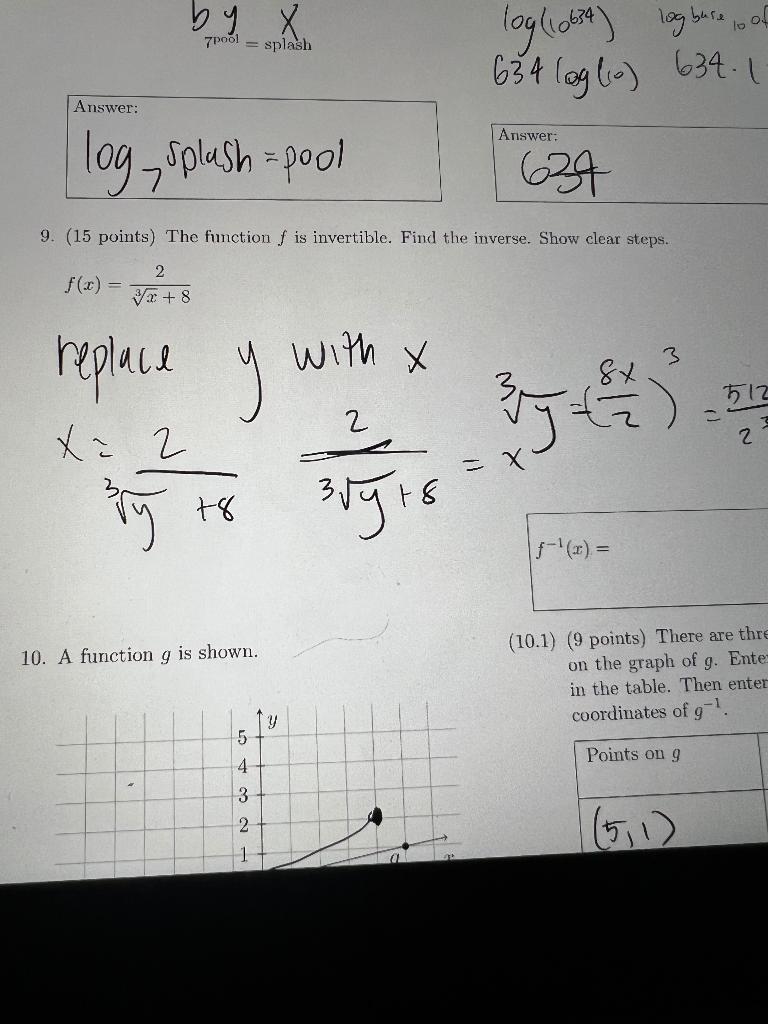 by x
7^pool = splash
log(10^634) log base 10 of
634 log(10) 634 · 1
Answer:
log_7 splash = pool
Answer:
634
9. (15 points) The function f is invertible. Find the inverse. Show clear steps.
f(x) = 2 / (∛x + 8)
replace y with x
x = 2 / (∛y + 8)
2 / (∛y + 8) = x
∛y = (8x / 2)^3 = 512 / 2^3
f^-1(x) =
10. A function g is shown.
(10.1) (9 points) There are thre
on the graph of g. Enter
in the table. Then enter
coordinates of g^-1.
y
5
4
3
2
1
g
x
Points on g
(5,1)